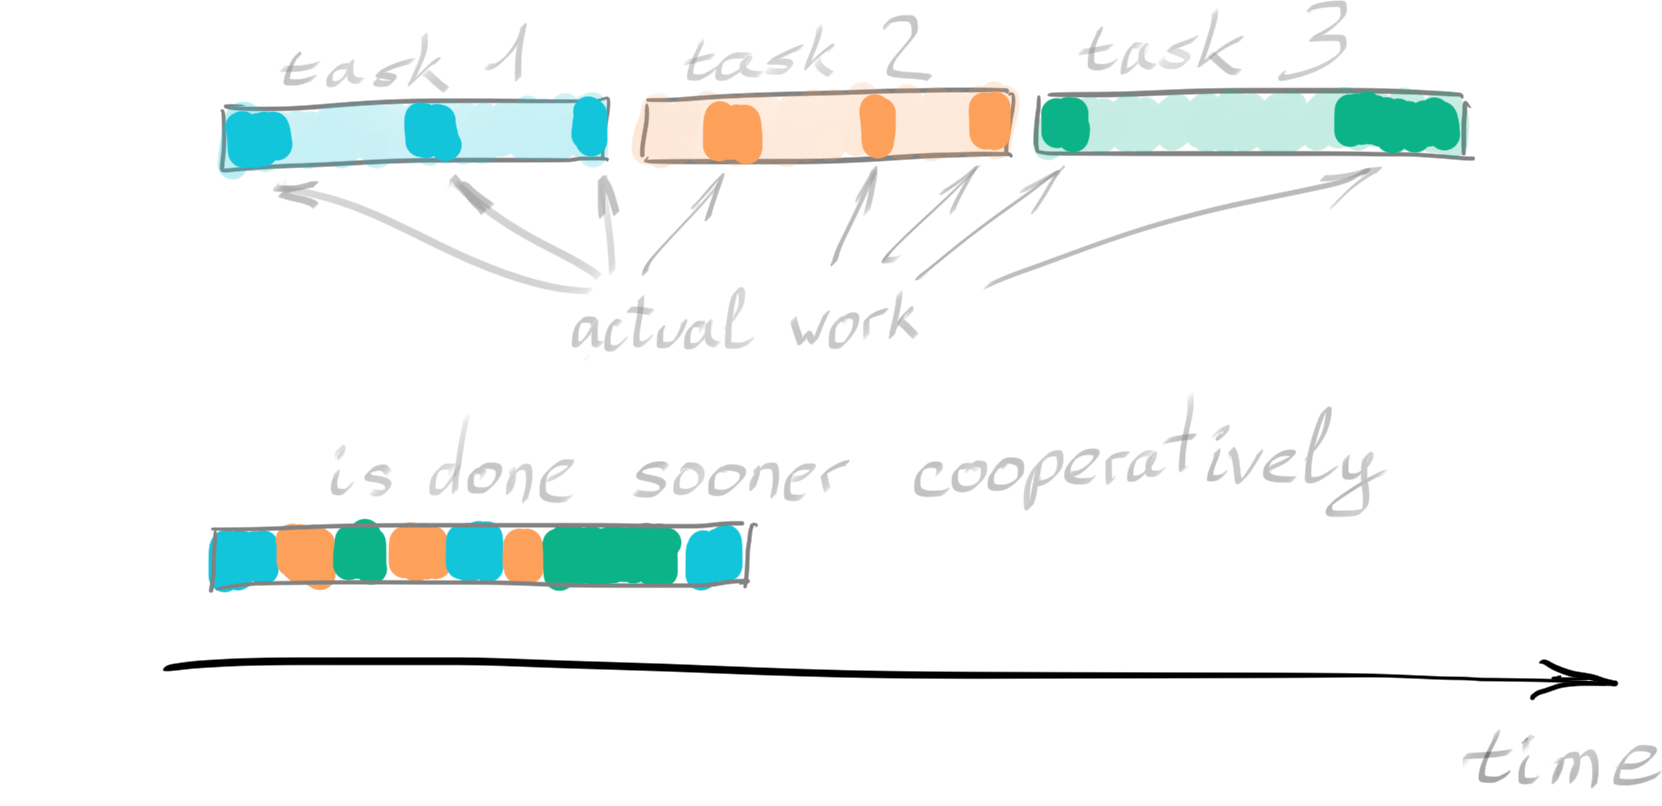 task 1 task 2 task 3
actual work
is done sooner cooperatively
time